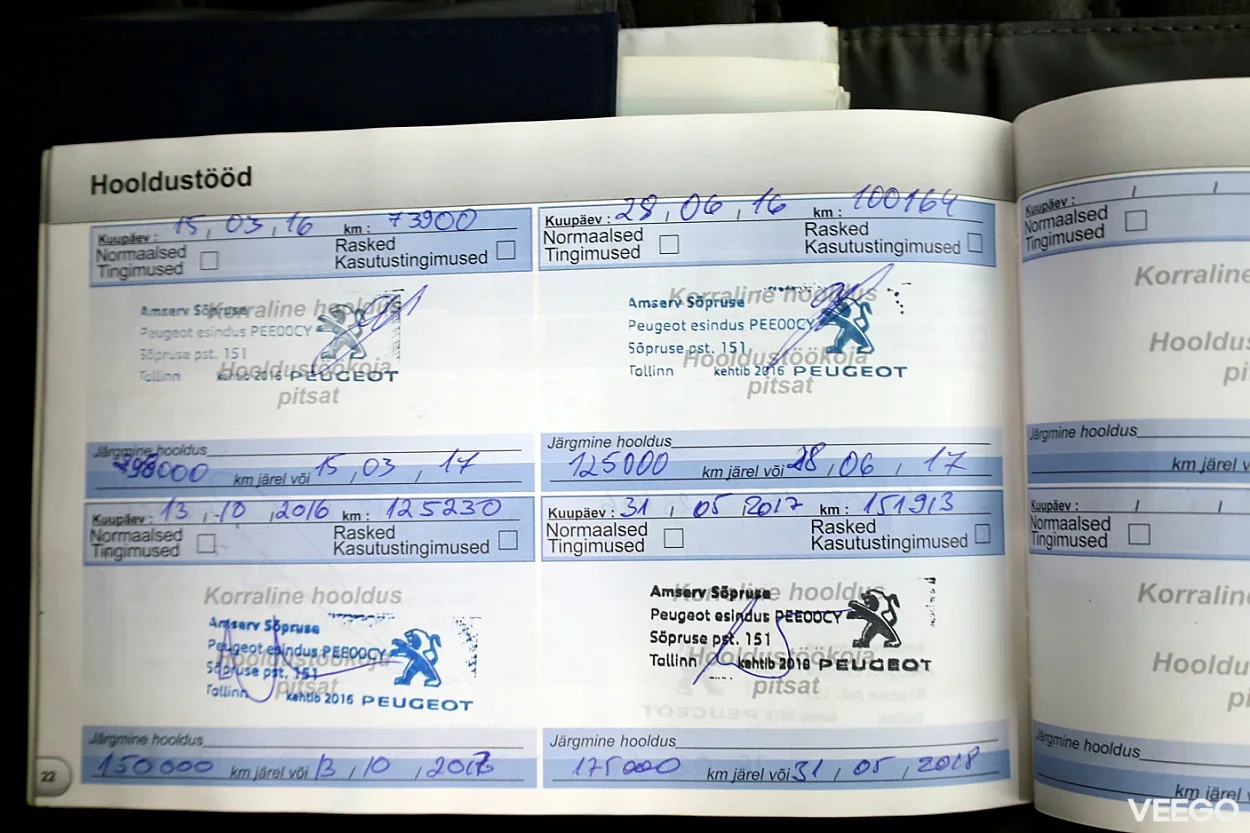 Hooldustööd
Kuupäev : 15 , 03 , 16 km : 73900
Normaalsed Tingimused
Rasked Kasutustingimused
Korraline hooldus
Amserv Sõpruse
Peugeot esindus PEE00CY
Sõpruse pst. 151
Hooldustöökoja
Tallinn kehtib 2016 PEUGEOT
pitsat
Järgmine hooldus
98000 km järel või 15 , 03 , 17
Kuupäev : 28 , 06 , 16 km : 100164
Normaalsed Tingimused
Rasked Kasutustingimused
Korraline hooldus
Amserv Sõpruse
Peugeot esindus PEE00CY
Sõpruse pst. 151
Hooldustöökoja
Tallinn kehtib 2016 PEUGEOT
pitsat
Järgmine hooldus
125000 km järel või 28 , 06 , 17
Kuupäev : 13 , 10 , 2016 km : 125230
Normaalsed Tingimused
Rasked Kasutustingimused
Korraline hooldus
Amserv Sõpruse
Peugeot esindus PEE00CY
Hooldustöökoja
Sõpruse pst. 151
pitsat
Tallinn kehtib 2016 PEUGEOT
Järgmine hooldus
150000 km järel või 13 , 10 , 2017
Kuupäev : 31 , 05 2017 km : 151913
Normaalsed Tingimused
Rasked Kasutustingimused
Korraline hooldus
Amserv Sõpruse
Peugeot esindus PEE00CY
Sõpruse pst. 151
Hooldustöökoja
Tallinn kehtib 2016 PEUGEOT
pitsat
Järgmine hooldus
175000 km järel või 31 , 05 , 2018
22
Kuupäev : / /
Normaalsed Tingimused
Korraline
Järgmine hooldus
km järel
Kuupäev : / /
Normaalsed Tingimused
Korraline
Järgmine hooldus
km järel
VEEGO